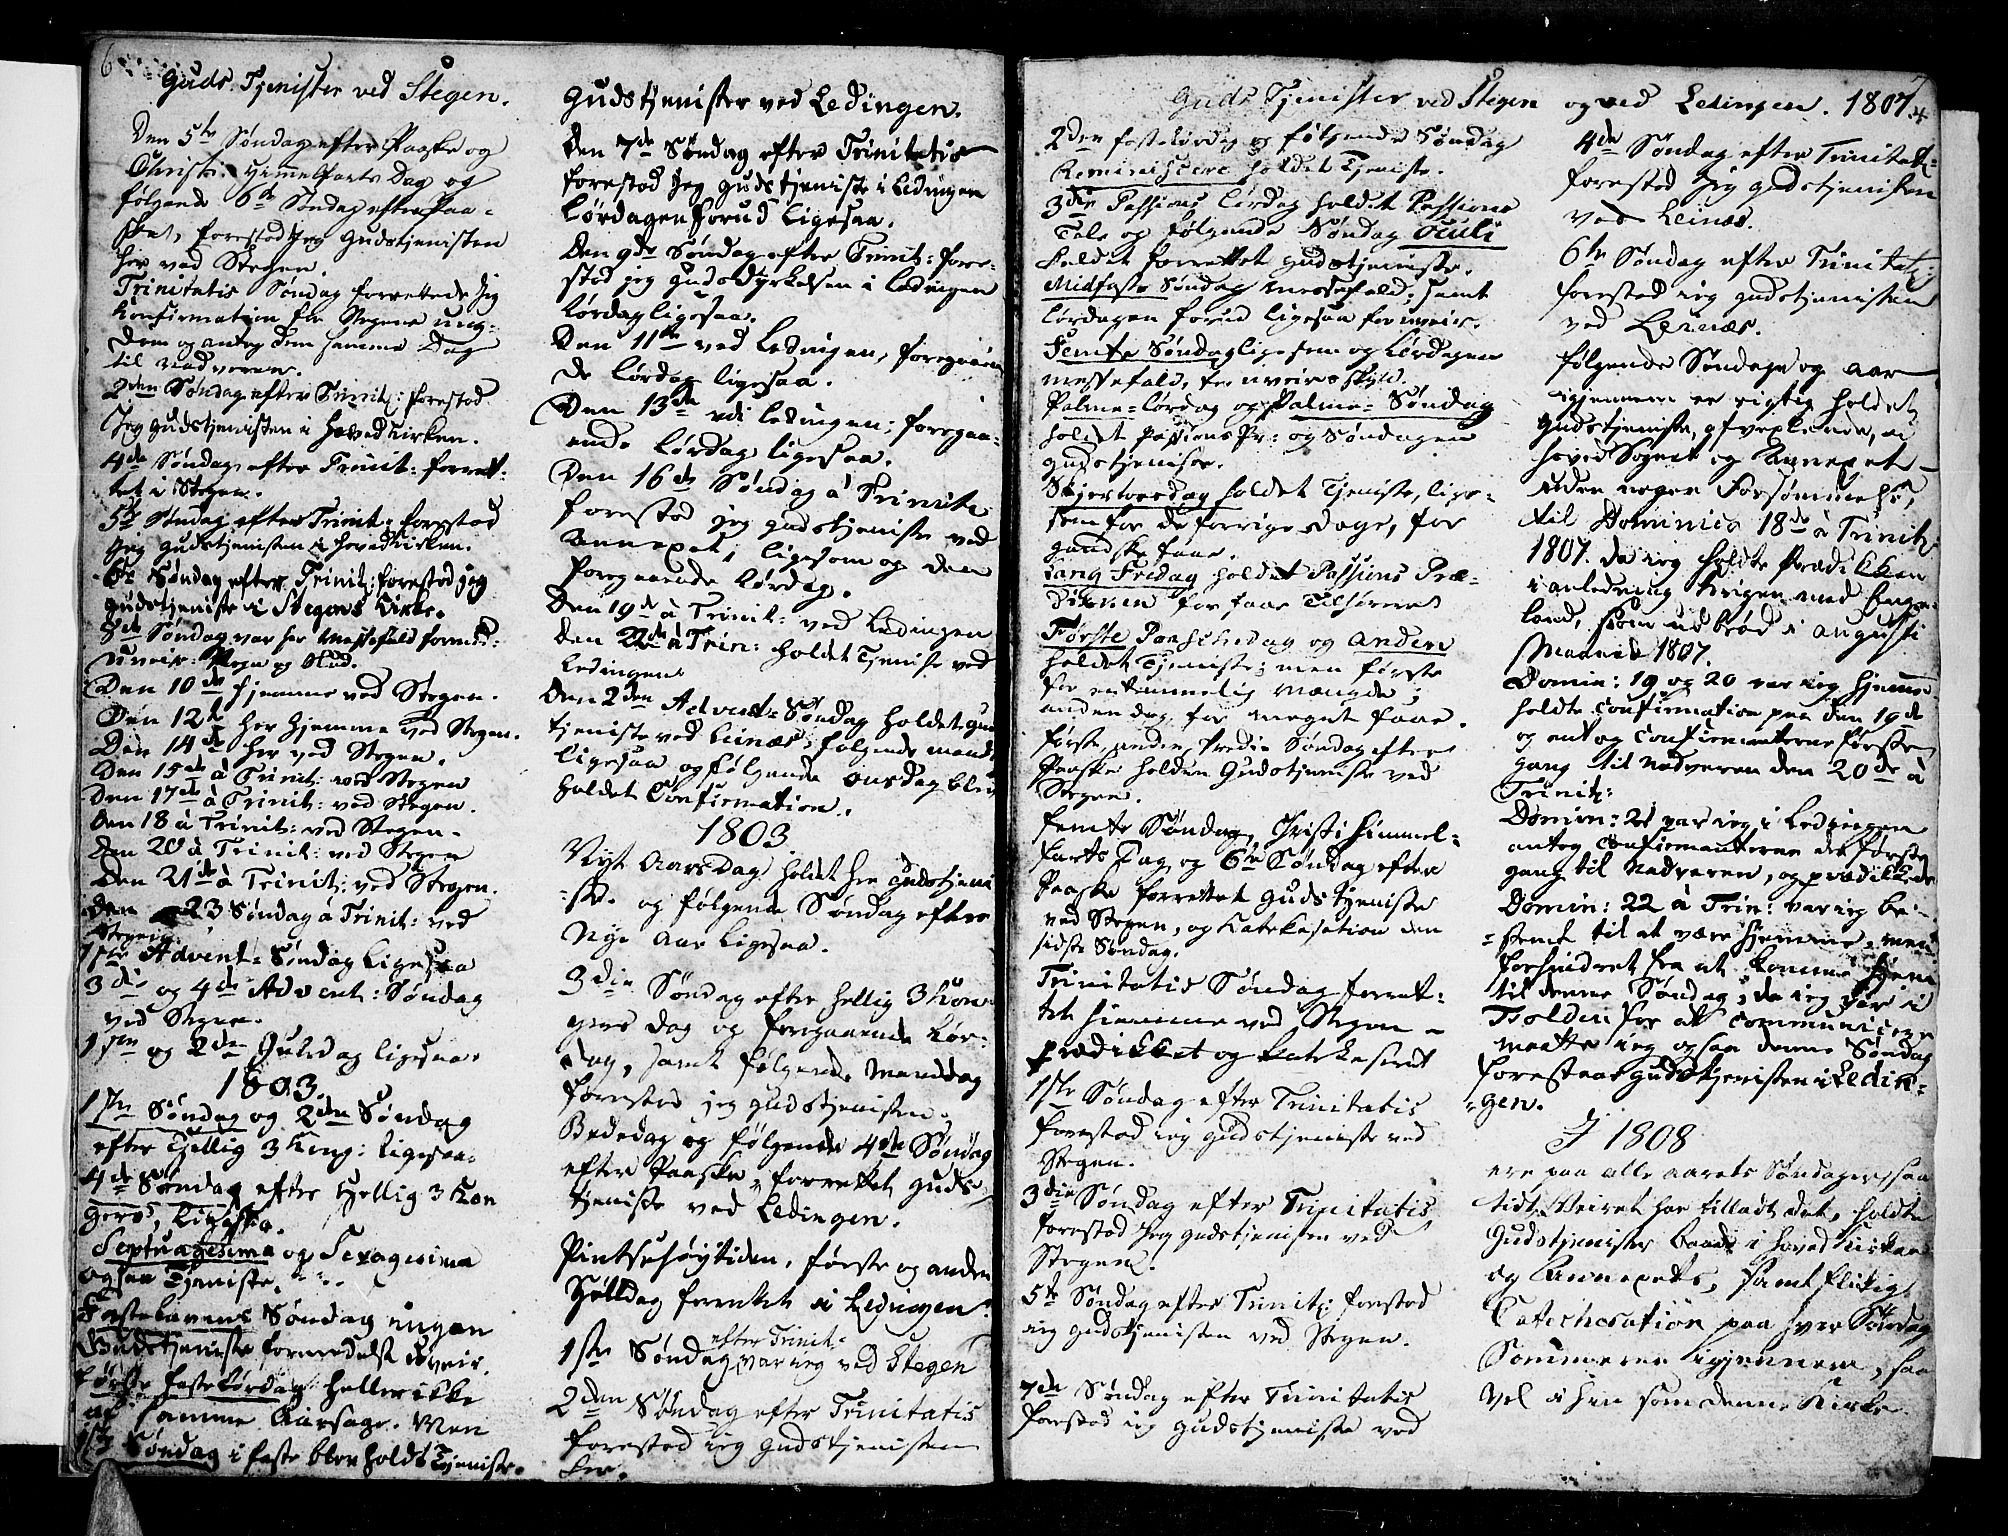 6
Guds Tjenister ved Stegen.
Den 5te Søndag efter Paaske og
Christi Himelfarts Dag og
følgende 6te Søndag efter Paa-
ske, forestod Jeg Gudstjenisten
her ved Stegen.
Trinitatis Søndag forrettede Jeg
Confirmation for Stegens ung-
dom og antog dem samme Dag
til Nadveren.
2den Søndag efter Trinit: forestod
Jeg Gudstjenisten i Hovedkirken.
4de Søndag efter Trinit: forret-
tet i Stegen.
5te Søndag efter Trinit: forestod
Jeg Gudstjenisten i Hovedkirken.
6te Søndag efter Trinit: forestod Jeg
Gudstjeniste i Stegens Kirke.
8de Søndag var her Messefald formed:
Uveir: Regn og Slud.
Den 10de hjemme ved Stegen.
Den 12te her hjemme ved Stegen.
Den 14de her ved Stegen.
Den 15de à Trinit: ved Stegen
Den 17de à Trinit: ved Stegen.
Den 18 à Trinit: ved Stegen.
Den 20 à Trinit: ved Stegen
Den 21de à Trinit: ved Stegen.
Den 23 Søndag à Trinit: ved
Stegen.
1ste Advent: Søndag ligesaa
3die og 4de Advent: Søndag
ved Stegen.
1ste og 2den Juledag ligesaa.
1803.
1ste Søndag og 2den Søndag
efter Hellig 3 Kong: ligesaa.
4de Søndag efter Hellig 3 Kon
gers, ligesaa.
Septuagesima og Sexagesima
ogsaa Tjeniste.
Fastelavens Søndag ingen
Gudstjeniste formedelst Uveir.
Første Faste Lørdag heller ikke
af samme Aarsage. Men
1ste Søndag i Faste blev holdt Tjeniste.
Gudstjenister ved Ledingen.
Den 7de Søndag efter Trinitatis
forestod Jeg Gudstjeniste i Ledingen
Lørdagen forud ligesaa.
Den 9de Søndag efter Trinit: fore-
stod jeg Gudsdyrkelsen i Ledingen
Lørdag ligesaa.
Den 11te ved Ledingen, foregaaen
de Lørdag ligesaa.
Den 13de udi Ledingen; foregaa-
ende Lørdag ligesaa.
Den 16de Søndag à Trinit:
forestod jeg Gudstjeniste ved
Annexet, ligesom og den
foregaaende Lørdag.
Den 19de à Trinit: ved Ledingen
Den 22de à Trin: holdet Tjeniste ved
Ledingen
Den 2den Advent: Søndag holdet Gud
tjeniste ved Leinæs, følgende mand
ligesaa og følgende Onsdag blev
holdet Confirmation.
1803
Nyt Aars Dag holdet her Gudstjeni
ste. og følgende Søndag efter
Nye Aar ligesaa.
3die Søndag efter Hellig 3 Kon
gers dag og foregaaende Lør-
dag, samt følgende Manddag
forestod jeg Gudstjenisten.
Bededag og følgende 4de Søndag
efter Paaske, forrettet Guds-
tjeniste ved Ledingen.
Pintsehøytiden, første og anden
Helldag forrettet i Ledingen.
1ste Søndag efter Trinit: var jeg ved Stegen
2den Søndag efter Trinitatis
forestod jeg Gudstjenisten
her.
7
Guds Tjenister ved Stegen og ved Ledingen. 1807.
2den Fastelørdag og følgende Søndag
Reminiscere holdet Tjeniste.
3die Passions Lørdag holdet Passions
Tale og følgende Søndag Oculi
holdet forrettet Gudstjeniste.
Midfaste Søndag Messefald; samt
Lørdagen forud ligesaa for uveir.
Femte Søndag ligesom og Lørdagen
messefald, for uveirs skyld.
Palme-Lørdag og Palme-Søndag
holdet Passions Pr: og Søndagen
Gudstjeniste.
Skjertorsdag holdet Tjeniste, lige-
som for de forrige Dage, for
gandske faae.
Lang Fredag holdet Passions Præ-
diken for faae Tilhørere
Første Paaschedag og anden
holdet Tjeniste; men første
for en temmelig mængde;
anden dag, for meget faae.
første, anden, tredie Søndag efter
Paaske holden Gudstjeniste ved
Stegen.
femte Søndag, Christi Himmel-
farts Dag og 6te Søndag efter
Paaske forrettet Guds tjeniste
ved Stegen, og Katekisation den
sidste Søndag.
Trinitatis Søndag forret-
tet hiemme ved Stegen -
prædikket og katekiseret
1ste Søndag efter Trinitatis
forestod jeg Gudstjeniste ved
Stegen.
3die Søndag efter Trinitatis
forestod Jeg Gudstjenisten ved
Stegen.
5te Søndag efter Trinit: forestod
jeg Gudstjenisten ved Stegen.
7de Søndag efter Trinitatis
forestod jeg Gudstjeniste ved
4de Søndag efter Trinitat:
forestod Jeg Gudstjenisten
ved Leinæs.
6te Søndag efter Trinitat:
forestod jeg Gudstjenisten
ved Leinæs.
følgende Søndage og Aar
igjennem er rigtig holdet
Gudstjeniste, afvexlende, ved
Hoved Sognet og Annexet -
uden nogen Forsømmelse,
til Dominica 18de à Trinit:
1807. da jeg holdte Prædikken
i anledning Krigen med Enge-
land, som udbrød i Augusti
Maaned 1807.
Domin: 19 og 20 var jeg hjemme
holdte Confirmation paa den 19de
og antog Confirmanterne første
gang til Nadveren den 20de à
Trinit:
Domin: 21 var jeg i Ledingen
antog Confirmanterne der første
gang til Nadveren, og prædikkede
Domin: 22 à Trin: var jeg be-
stemt til at være hjemme, men
forhindret fra at komme hjem
til denne Søndag, da jeg var i
Folden for at communicere
maatte jeg ogsaa denne Søndag
forestaae Gudstjenisten i Ledin-
gen.
I 1808
ere paa alle Aarets Søndager, saa
tidt Veiret har tilladt det, holdte
Gudstjenister baade i Hoved Kirken
og Annexets, samt flitig
Catechesation paa hver Søndag
Sommeren igjennem, saa
vel i hin som denne Kirke.